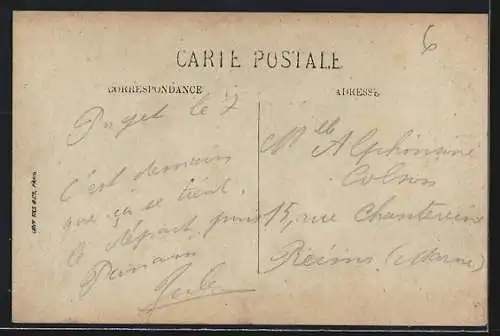 6
CARTE POSTALE
CORRESPONDANCE
ADRESSE
Puget le 7
C'est demain
que ça se tient
le départ puis
Jules
Mlle Alphonsine
Colson
15, rue Chantereine
Reims (Marne)